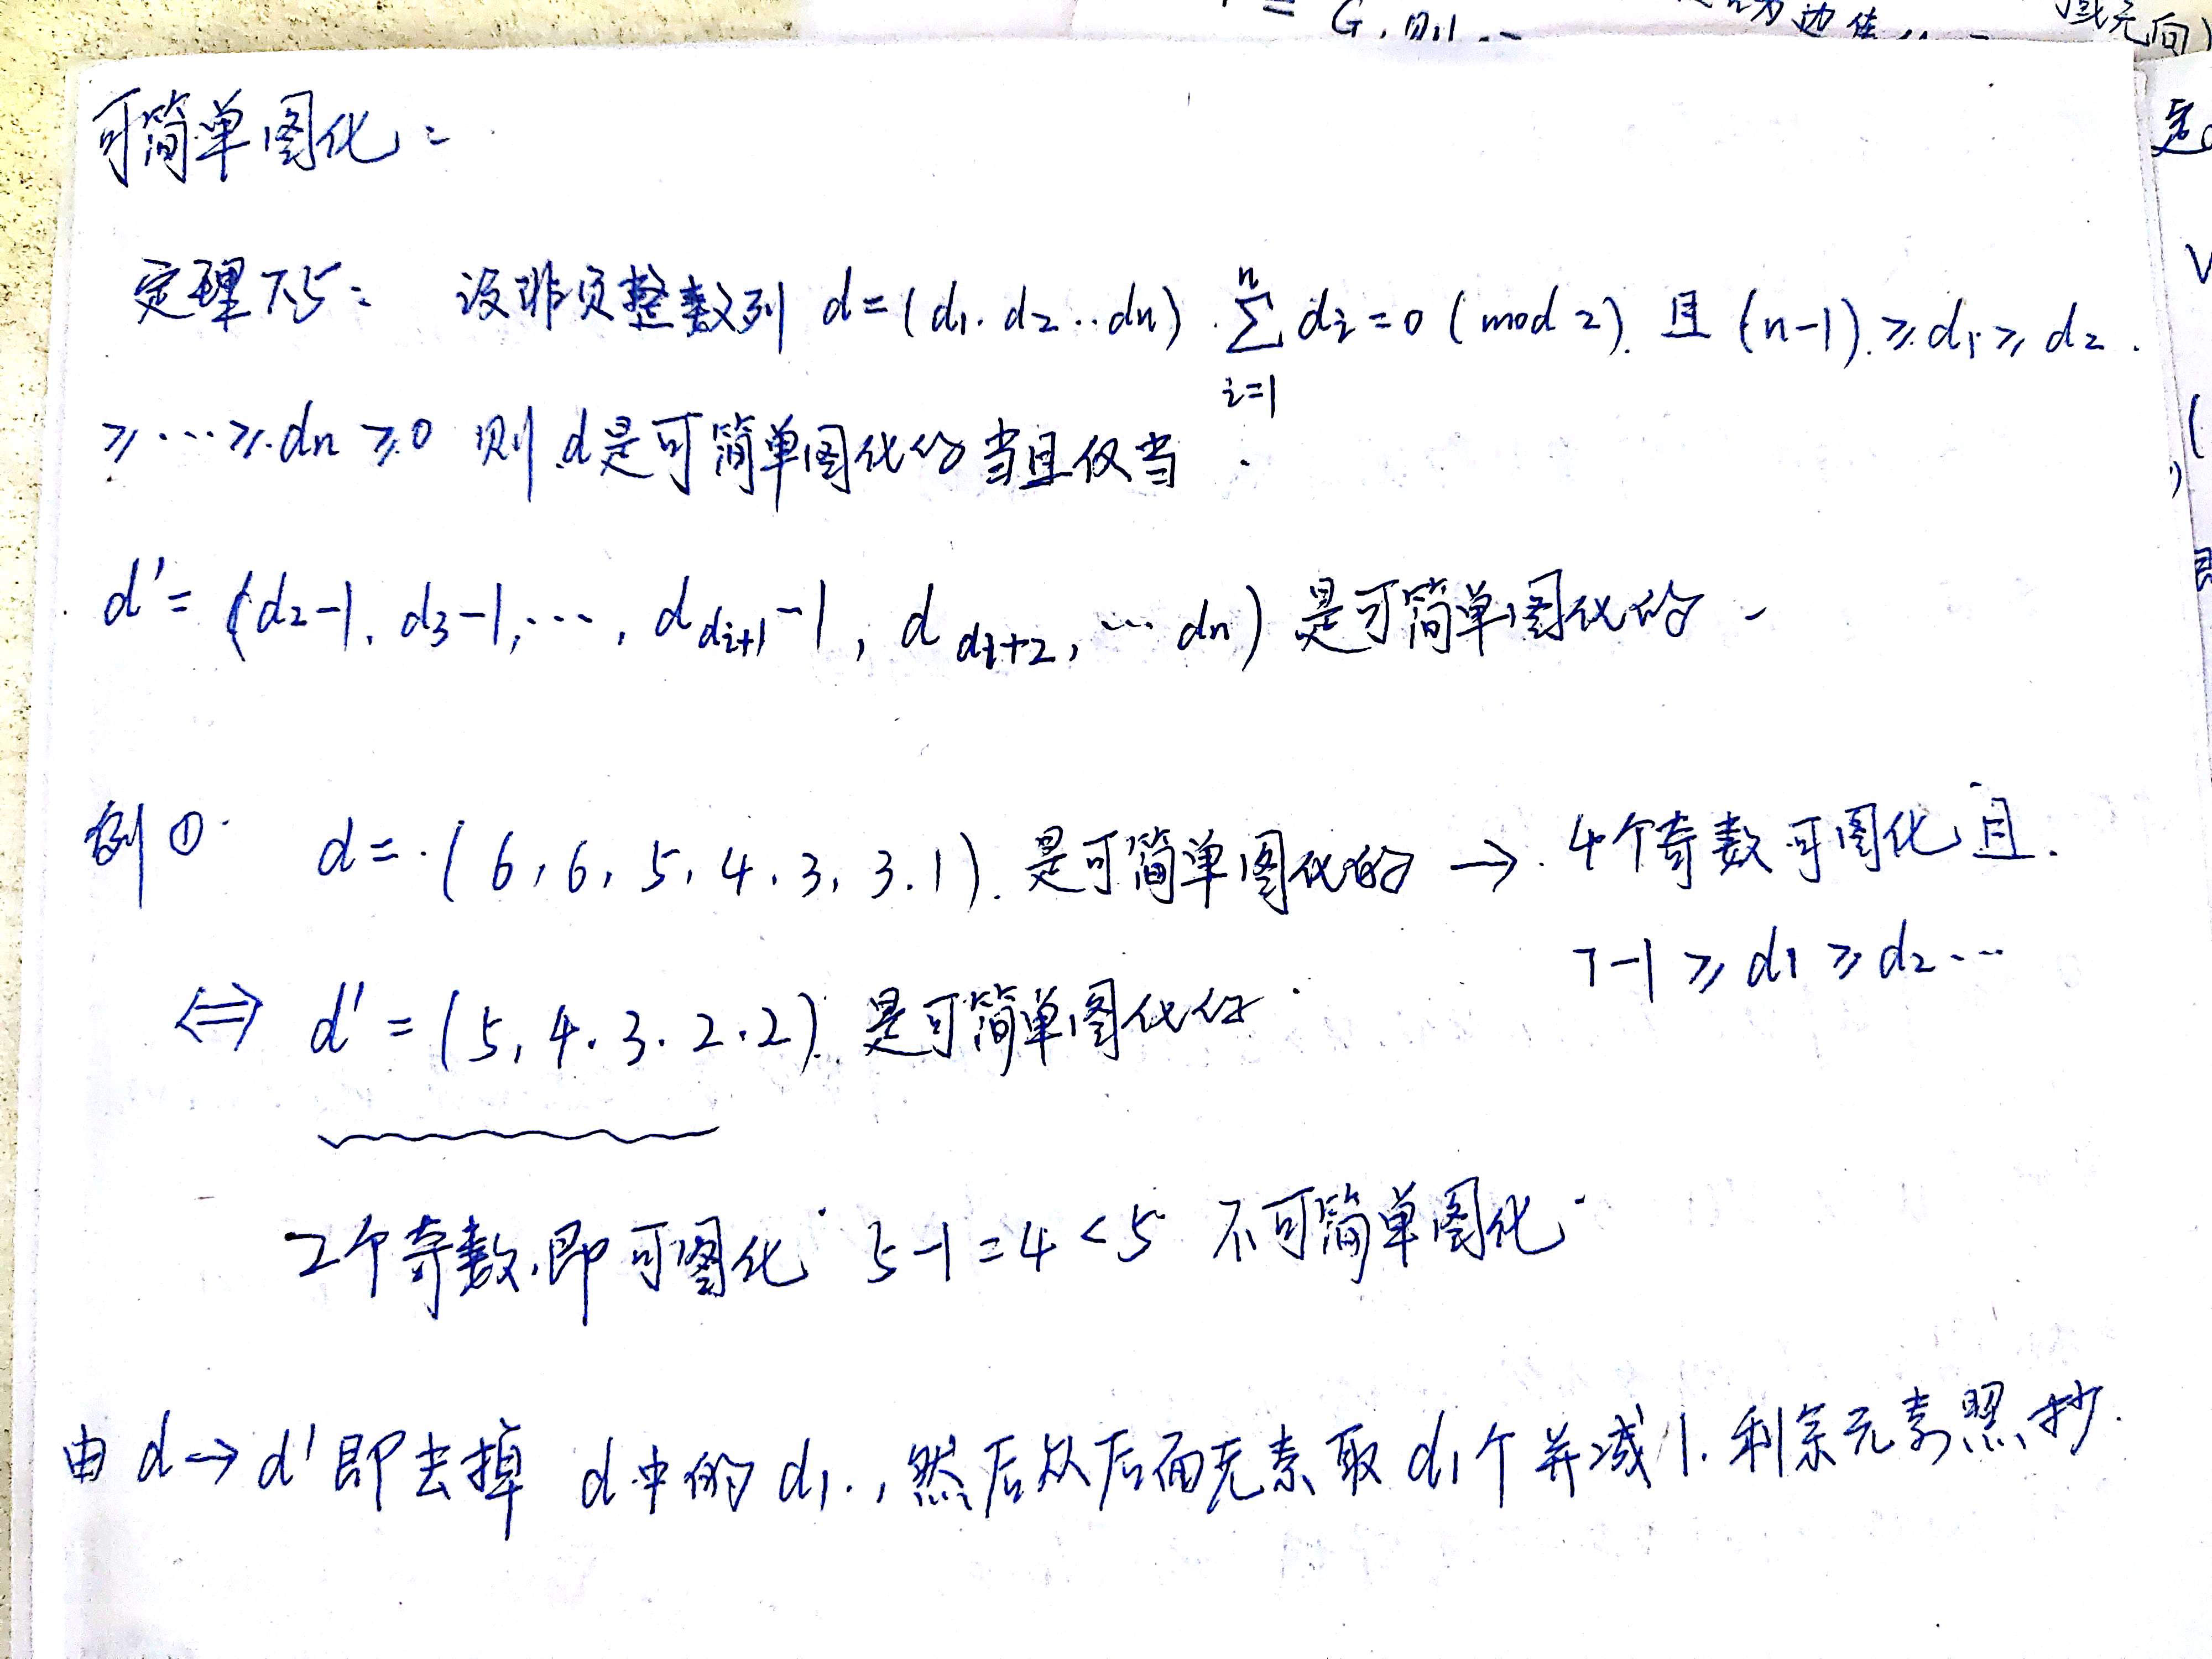 G, 则
为边
或无向)
可简单图化：
定理7.5： 设非负整数列 d=(d₁. d₂ ‥dₙ). ∑ⁿᵢ₌₁ dᵢ=0 (mod 2). 且 (n-1).≥d₁≥d₂.
≥…≥dₙ≥0 则d是可简单图化的当且仅当
d'=(d₂-1. d₃-1,…, d_{dᵢ+1}-1, d_{dᵢ+2},…dₙ) 是可简单图化的
例①. d=(6,6,5,4.3,3.1). 是可简单图化的 → 4个奇数可图化且.
7-1≥d₁≥d₂…
⇔ d'=(5,4.3.2.2). 是可简单图化的
2个奇数.即可图化 5-1=4<5 不可简单图化
由 d→d' 即去掉 d中的d₁.,然后从后面元素取d₁个并减1.剩余元素照抄.